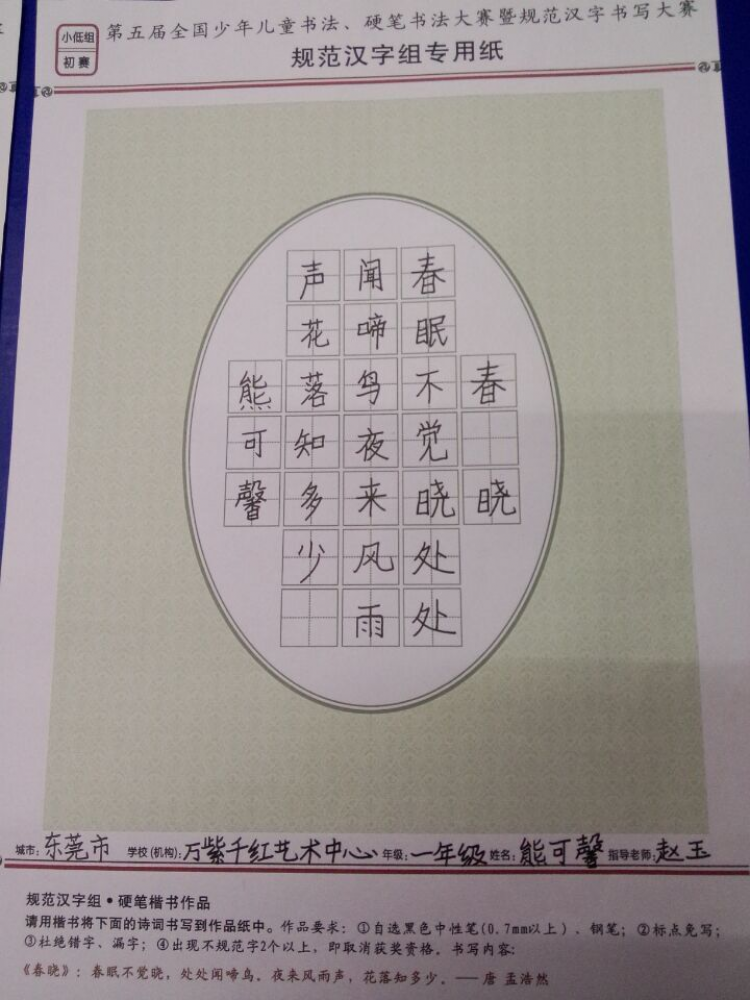 小低组
初赛
第五届全国少年儿童书法、硬笔书法大赛暨规范汉字书写大赛
规范汉字组专用纸
春晓
春眠不觉晓处处
闻啼鸟夜来风雨
声花落知多少
熊可馨
城市:东莞市 学校(机构):万紫千红艺术中心 年级:一年级 姓名:熊可馨 指导老师:赵玉
规范汉字组•硬笔楷书作品
请用楷书将下面的诗词书写到作品纸中。作品要求:①自选黑色中性笔(0.7mm以上)、钢笔;②标点免写;
③杜绝错字、漏字;④出现不规范字2个以上,即取消获奖资格。书写内容:
《春晓》:春眠不觉晓,处处闻啼鸟。夜来风雨声,花落知多少。——唐 孟浩然